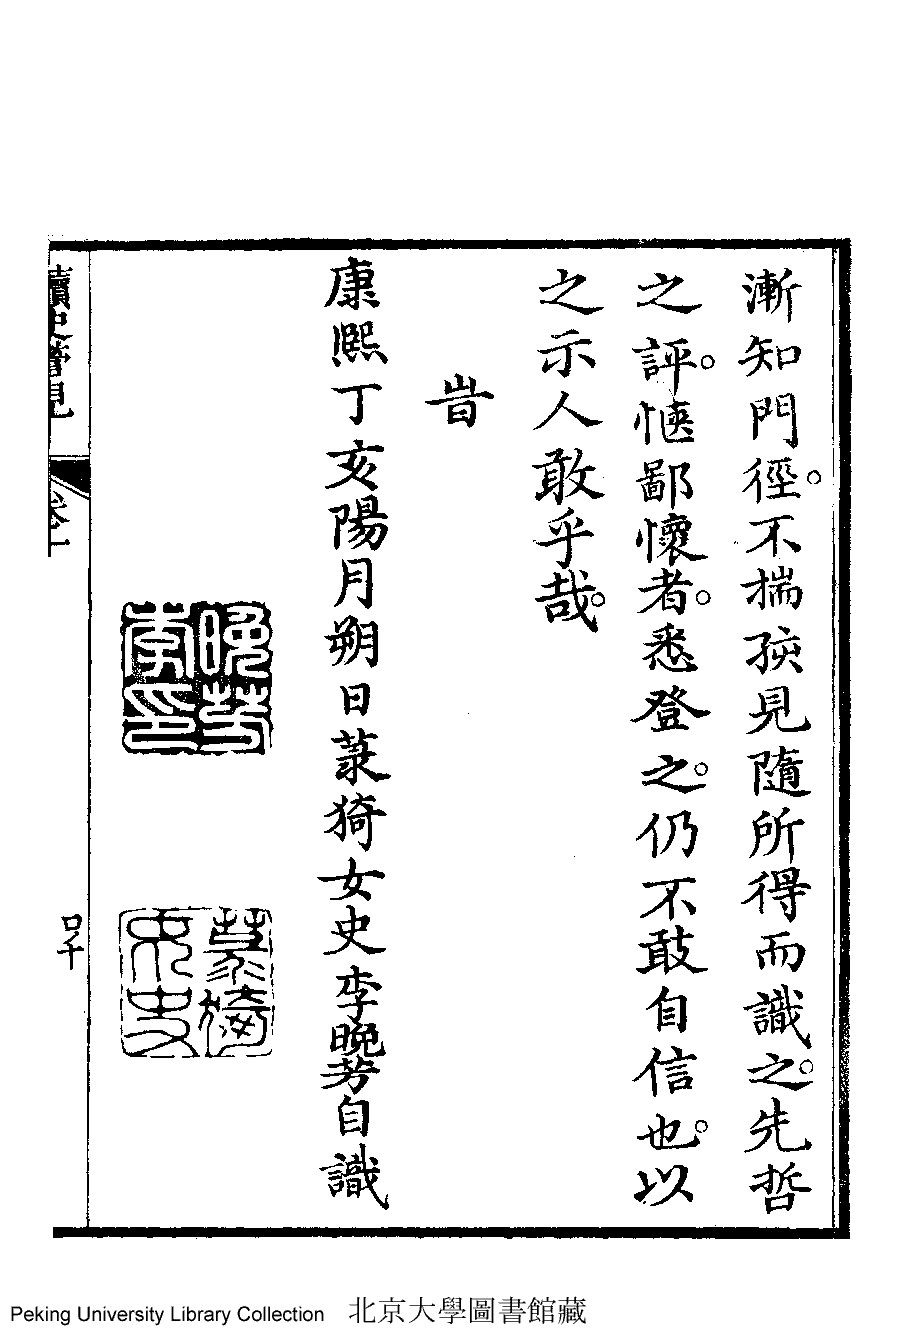 漸知門徑。不揣孩見隨所得而識之。先哲
之評。愜鄙懷者。悉登之。仍不敢自信也。以
之示人敢乎哉。
旹
康熙丁亥陽月朔日菉猗女史李晚芳自識
晚芳
李印
菉猗
女史
讀史管見
卷一
Peking University Library Collection 北京大學圖書館藏